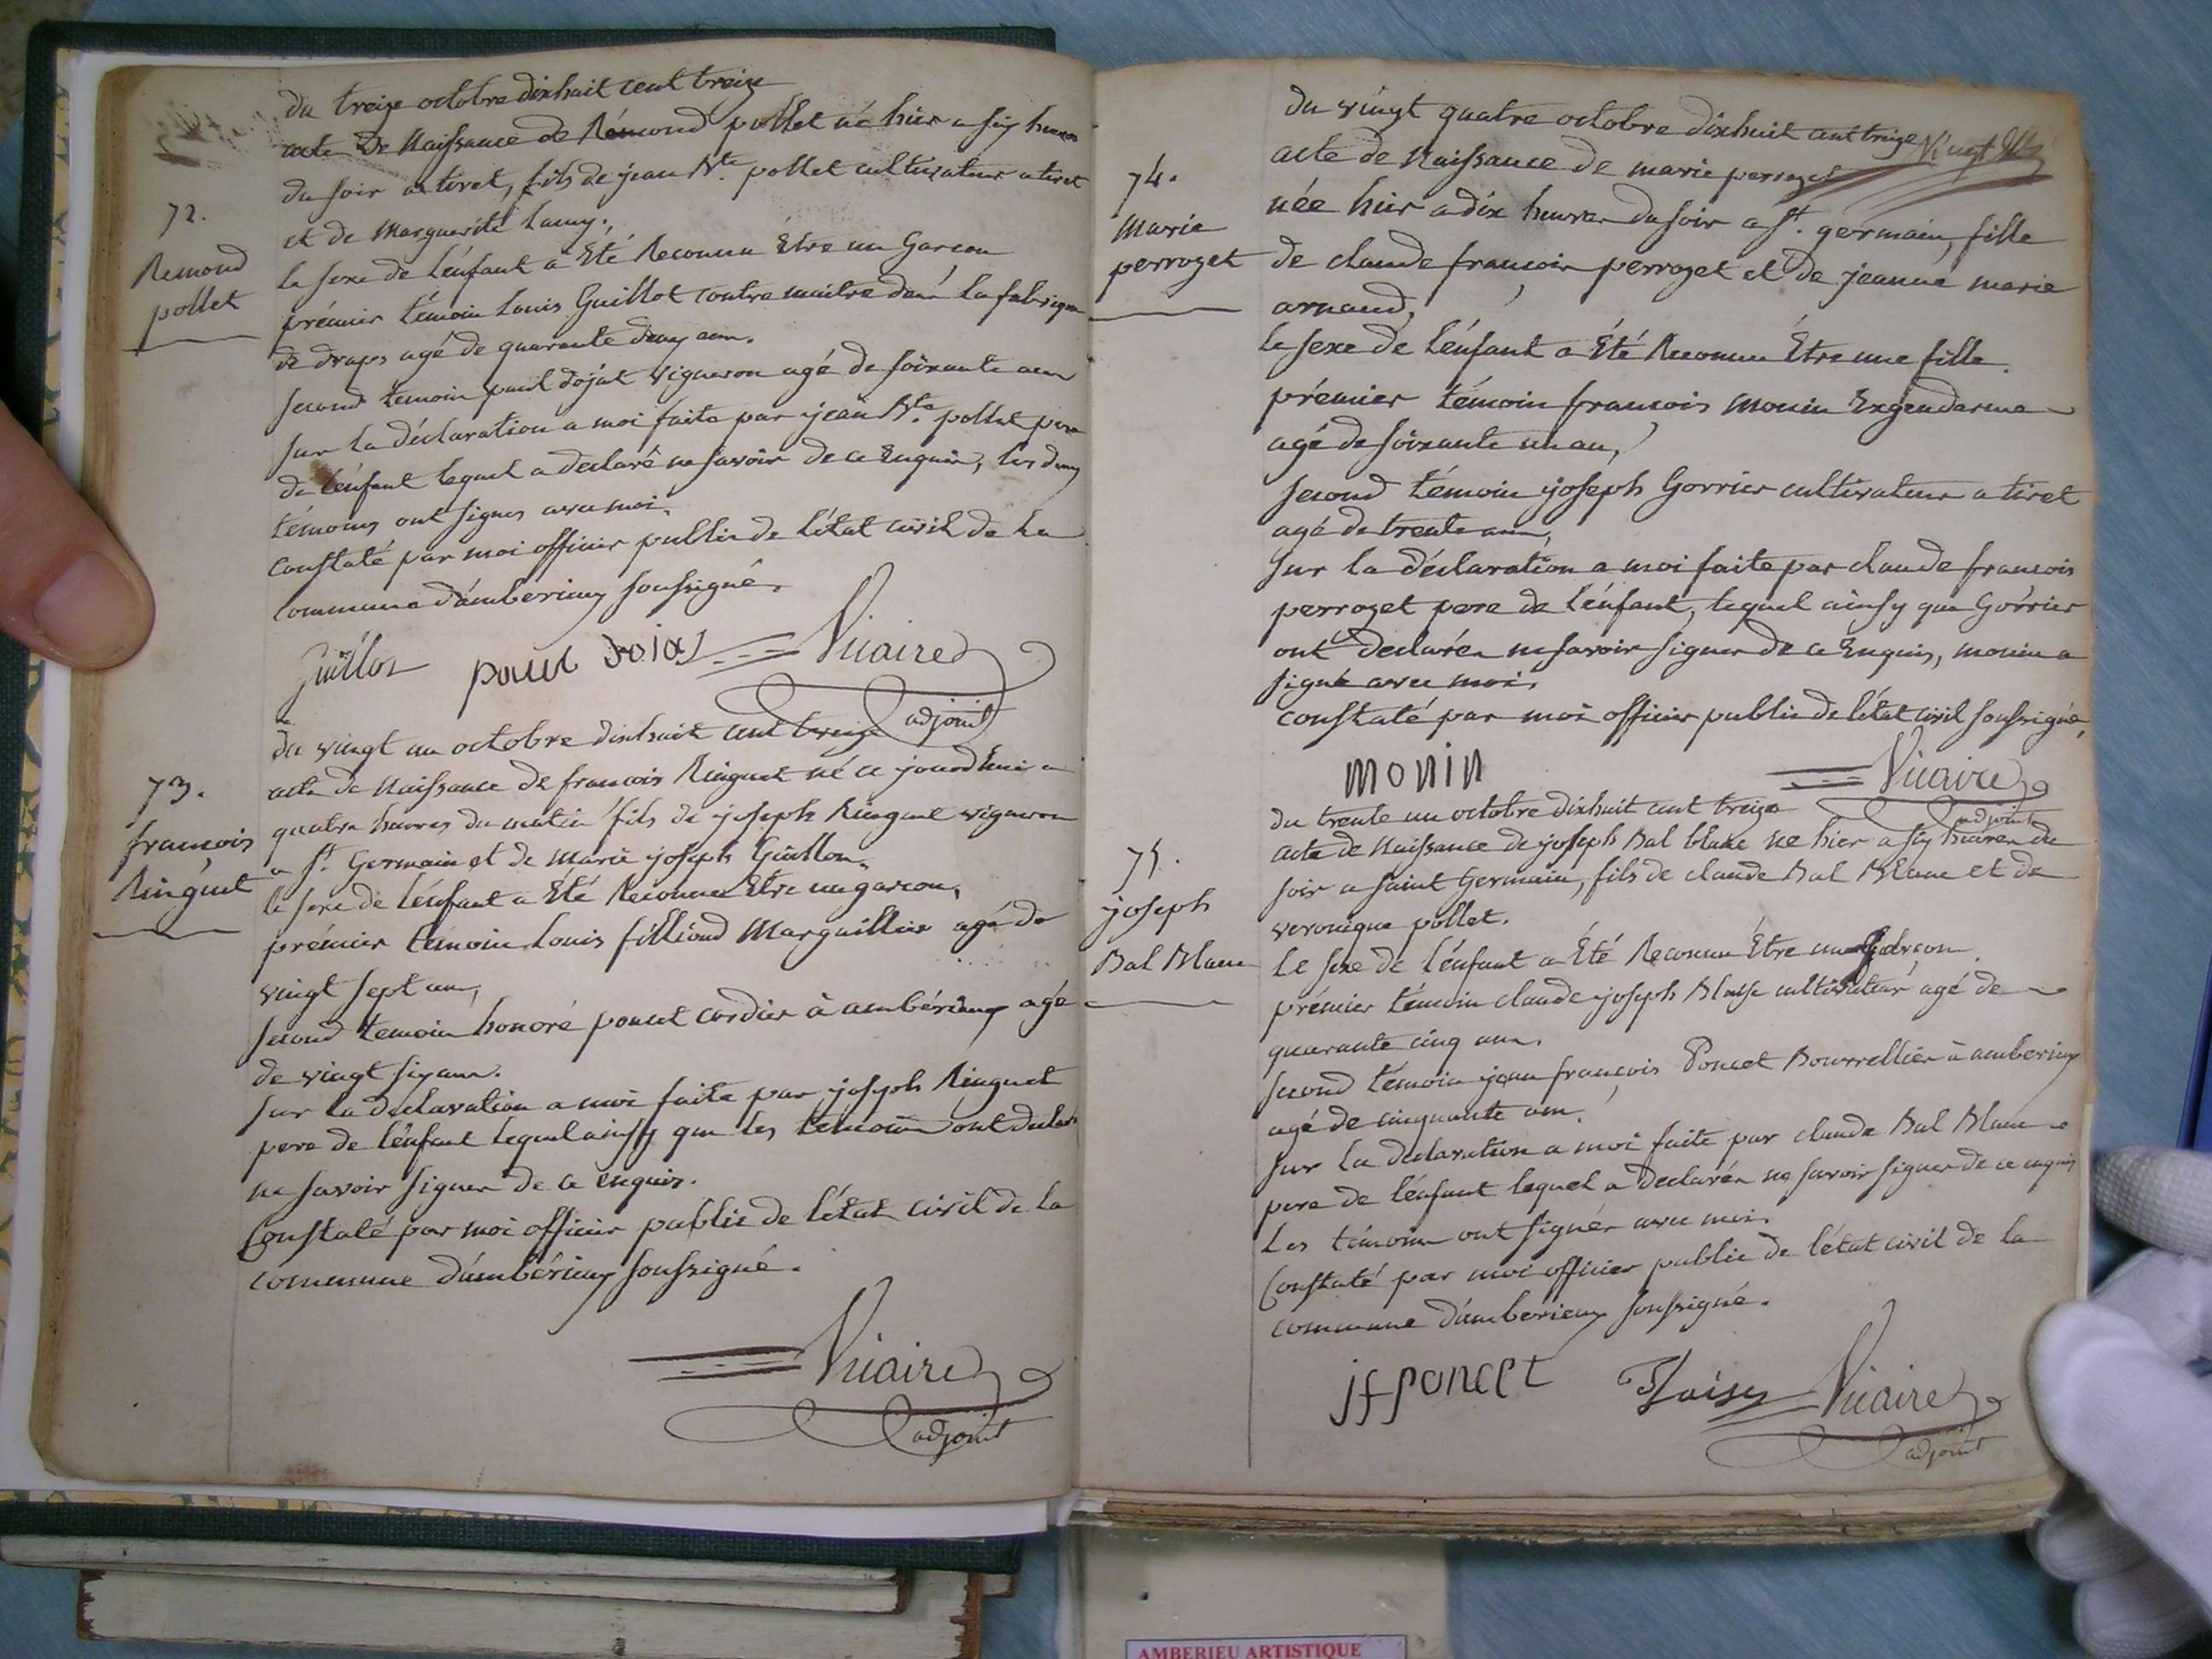 du treize octobre dixhuit cent treize
acte de Naissance de Rémond pollet né hier a six heures
du soir a tiret, fils de jean Bte. pollet cultivateur a tiret
et de Marguerite Lamy.
72.
Remond
pollet
le sexe de l'énfant a Eté Reconnu Etre un Garcon
prémier témoin Louis Guillot contre maitre dans la fabrique
de draps agé de quarante deux ans.
second temoin paul dojat vigneron agé de soixante ans
sur la déclaration a moi faite par jean Bte. pollet pere
de l'énfant lequel a declaré ne savoir de ce Enquis, les deux
témoins ont signes avec moi.
constaté par moi officier public de l'état civil de la
commune d'amberieux soussigné.
Guillot paul doiat Vicaire
adjoint
du vingt un octobre dixhuit cent treize
73.
francois
Ringuet
acte de Naissance de francois Ringuet né ce jourd'hui a
quatre heures du matin fils de joseph Ringuet vigneron
a St. Germain et de Marie joseph Guillon.
le sexe de l'énfant a Eté Reconnu Etre un garcon.
prémier temoin Louis filliond Marguillier agé de
vingt sept ans,
second temoin honoré poncet cordier à ambérieux agé
de vingt six ans.
sur la declaration a moi faite par joseph Ringuet
pere de l'énfant lequel ainsy que les temoins ont declaré
ne savoir signer de ce enquis.
Constaté par moi officier public de l'état civil de la
commune d'ambérieux soussigné.
Vicaire
adjoint
du vingt quatre octobre dixhuit cent treize
acte de Naissance de marie perrozet
74.
Marie
perrozet
née hier a dix heures du soir a St. germain, fille
de claude francois perrozet et de jeanne marie
arnaud,
le sexe de l'énfant a Eté Reconnu Etre une fille.
prémier témoin francois Monin Exgendarme
agé de soixante un an,
second témoin joseph Gorrier cultivateur a tiret
agé de trente ans,
sur la déclaration a moi faite par claude francois
perrozet pere de l'énfant, lequel ainsy que Gorrier
ont declarés ne savoir signer de ce Enquis, monin a
signé avec moi.
constaté par moi officier public de l'état civil soussigné,
monin Vicaire
adjoint
du trente un octobre dixhuit cent treize
75.
joseph
Bal Blanc
acte de Naissance de joseph Bal blanc né hier a six heures du
soir a saint Germain, fils de claude Bal Blanc et de
veronique pollet.
Le sexe de l'énfant a Eté Reconnu Etre un garcon.
prémier témoin claude joseph Blaise cultivateur agé de
quarante cinq ans.
second témoin jean francois Poncet Bourrellier à amberieux
agé de cinquante ans.
sur la declaration a moi faite par claude Bal Blanc
pere de l'énfant lequel a declarés ne savoir signer de ce enquis
Les témoins ont signés avec moi.
Constaté par moi officier public de l'état civil de la
commune d'amberieux soussigné.
jfponcet Blaise Vicaire
adjoint
AMBERIEU ARTISTIQUE